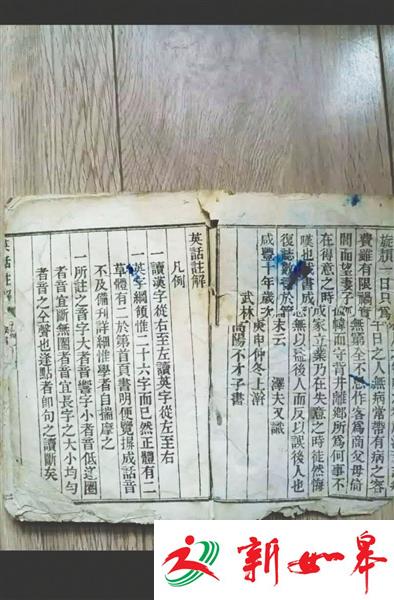 日只為千日之人無病常帶有病之容
費雖有限禍實無窮第全不忍作客為商父母倚
閭而望妻子倚幃而守背井離鄉所為何事不
在得意之時成家立業乃在失意之時徒然悔
嘆也茲書成無以慰後人而反以誤後人也
復誌數言於末云 澤夫又識
咸豐十年歲次庚申仲冬上澣
武林高陽不才子書
英話註解
凡例
一讀漢字從右至左讀英字從左至右
一英字綱領惟二十六字而已然正體有二
草體有二於第首頁書明便覽挪成話音
不及備刊詳細惟學者自揣摩之
一所註之音字大者音響字小者音低逕圈
者音宜斷無圈者音宜長字之大小均勻
者音之全聲也逢點者卽句之讀斷矣
英話註解
新如皋